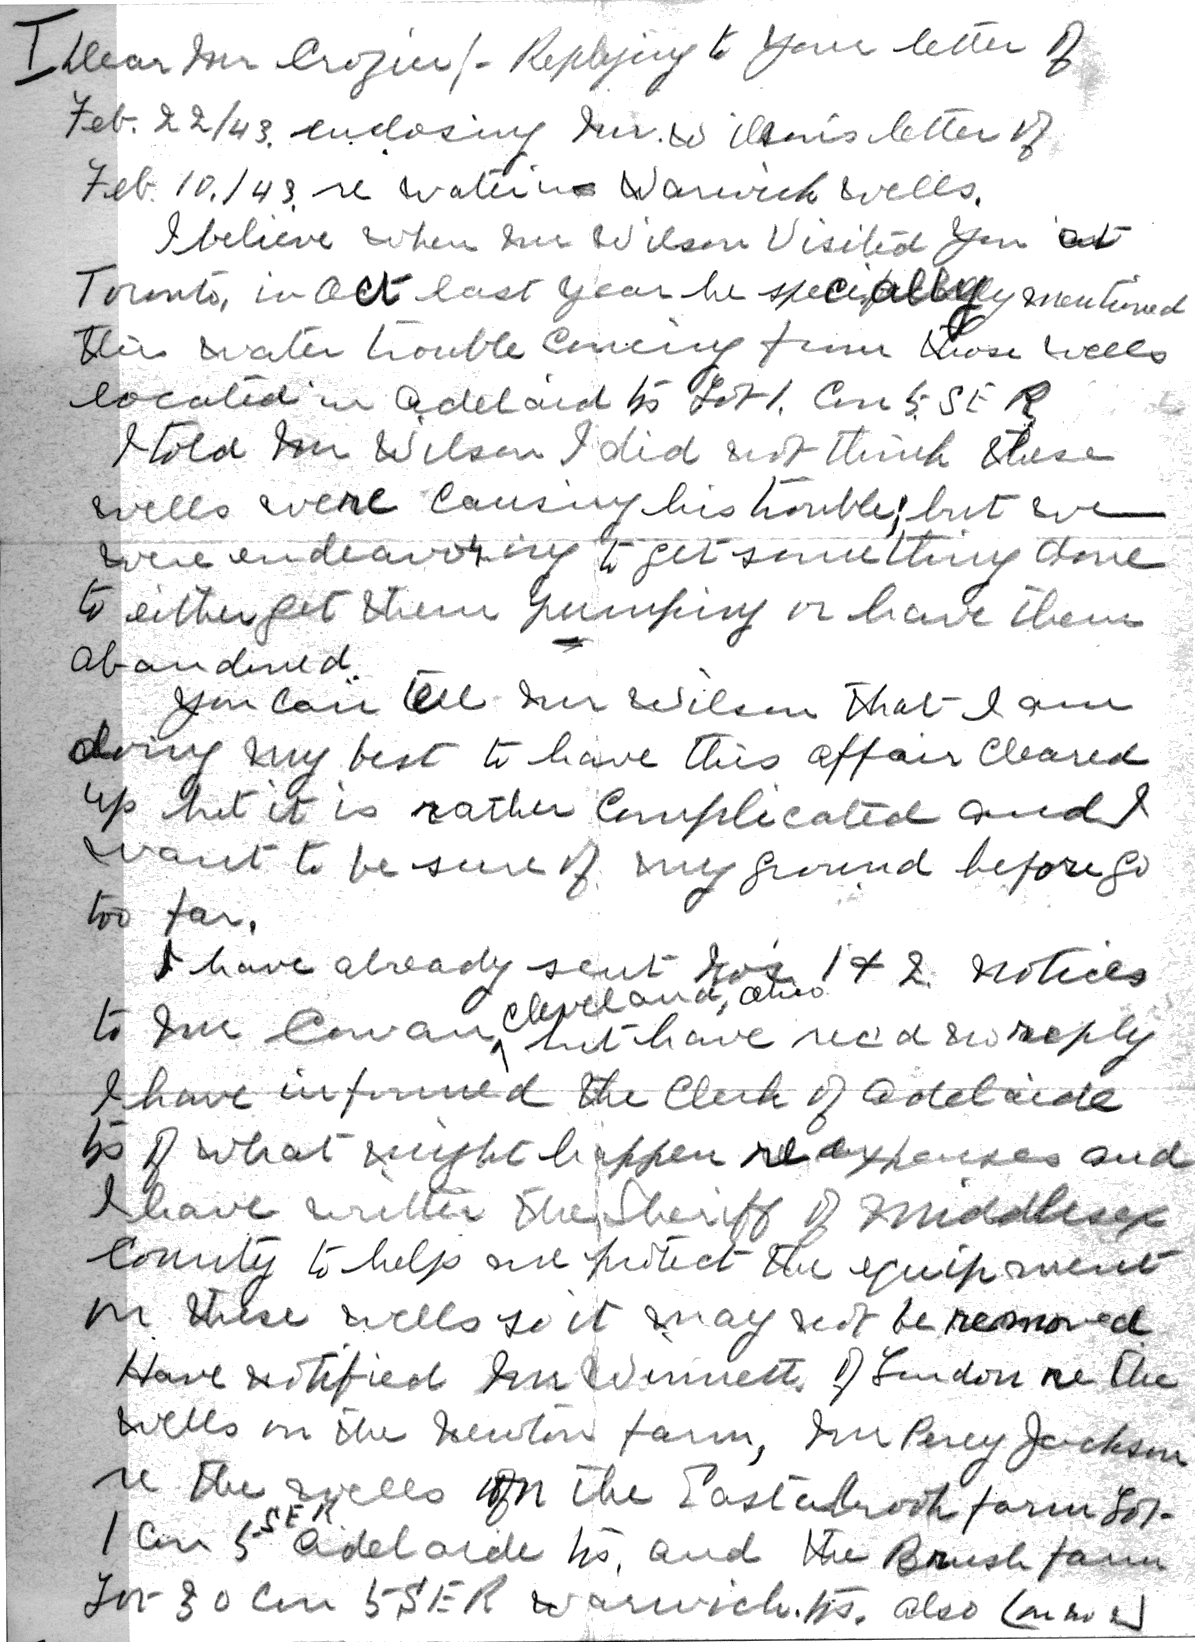 I Dear Mr Crozier/- Replying to your letter of
Feb. 22/43. enclosing Mr. Wilson's letter of
Feb. 10./43. re water in Warwick wells.
I believe when Mr Wilson Visited you at
Toronto, in Oct last year he specially mentioned
this water trouble coming from those wells
located in Adelaid ts Lot 1. Con 5. SER
I told Mr Wilson I did not think these
wells were causing his trouble, but we
were endeavoring to get something done
to either get them pumping or have them
abandoned.
You can tell Mr Wilson that I am
doing my best to have this affair cleared
up but it is rather complicated and I
want to be sure of my ground before go
too far.
I have already sent No's 1 & 2 notices
to Mr Cowan, Cleveland, Ohio but have rec'd no reply
I have informed the Clerk of Adelaide
ts of what might happen re expenses and
I have written the Sheriff of Middlesex
County to help me protect the equipment
on these wells so it may not be removed
Have notified Mr Winnett of London re the
wells on the Newton farm, Mr Percy Jackson
re the wells on the Eastabrook farm Lot
1 Con 5 SER Adelaide ts. and the Brush farm
Lot 30 Con 5 SER Warwick. ts. also